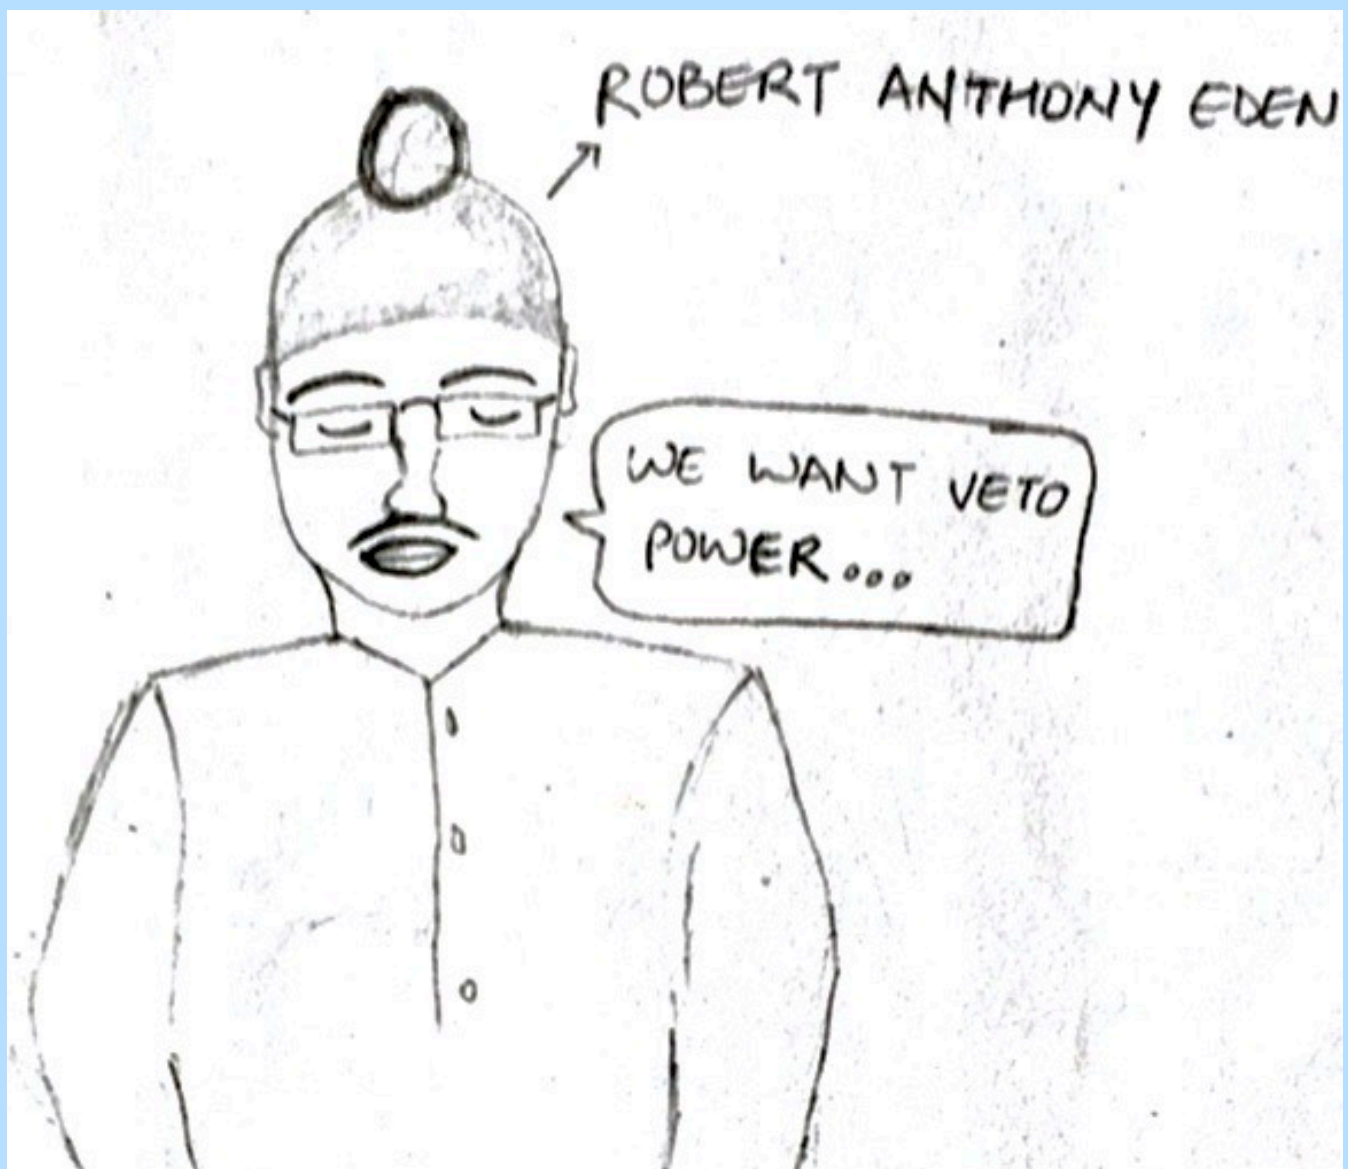 ROBERT ANTHONY EDEN
WE WANT VETO
POWER...